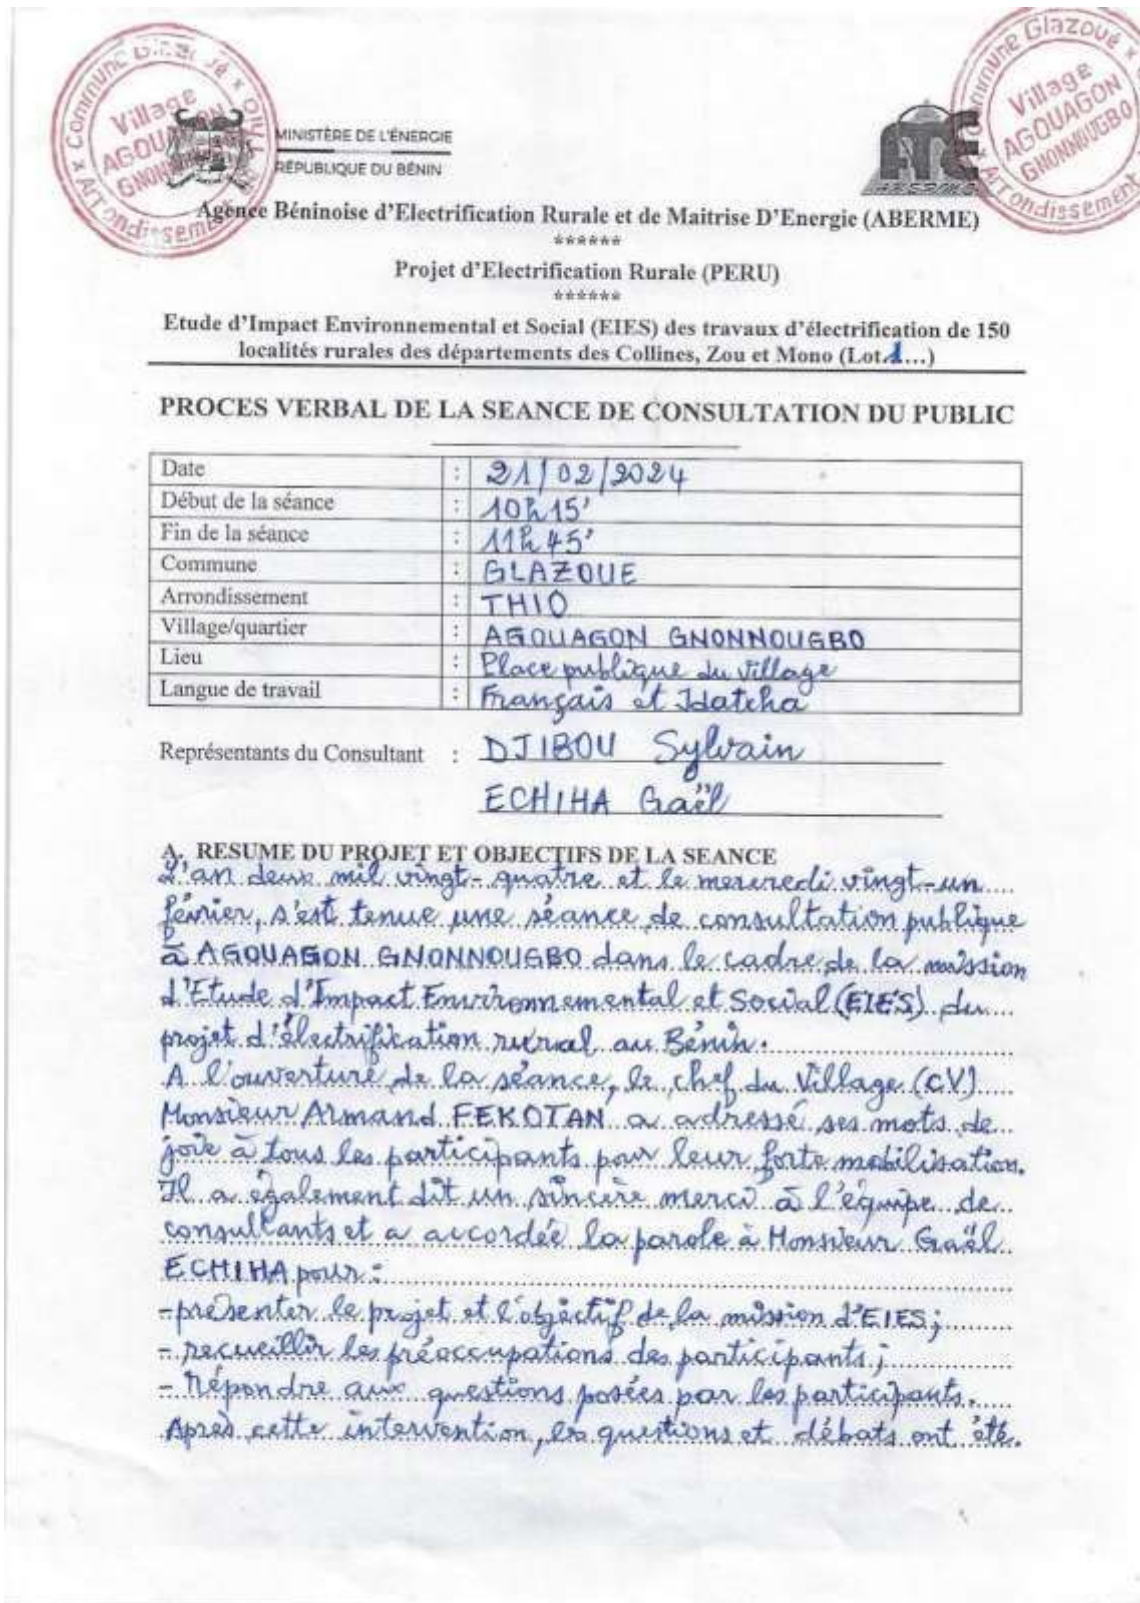 Commune Glazoué x
Village
AGOUAGON
GNONNOUGBO
Arrondissement Thio x
MINISTÈRE DE L'ÉNERGIE
RÉPUBLIQUE DU BÉNIN
Commune Glazoué x
Village
AGOUAGON
GNONNOUGBO
Arrondissement
Agence Béninoise d'Electrification Rurale et de Maitrise D'Energie (ABERME)
******
Projet d'Electrification Rurale (PERU)
******
Etude d'Impact Environnemental et Social (EIES) des travaux d'électrification de 150
localités rurales des départements des Collines, Zou et Mono (Lot.1...)
PROCES VERBAL DE LA SEANCE DE CONSULTATION DU PUBLIC
Date : 21/02/2024
Début de la séance : 10h15'
Fin de la séance : 11h45'
Commune : GLAZOUE
Arrondissement : THIO
Village/quartier : AGOUAGON GNONNOUGBO
Lieu : Place publique du village
Langue de travail : Français et Idatcha
Représentants du Consultant : DJIBOU Sylvain
ECHIHA Gaël
A. RESUME DU PROJET ET OBJECTIFS DE LA SEANCE
L'an deux mil vingt-quatre et le mercredi vingt-un
février, s'est tenue une séance de consultation publique
à AGOUAGON GNONNOUGBO dans le cadre de la mission
d'Etude d'Impact Environnemental et Social (EIES) du
projet d'électrification rural au Bénin.
A l'ouverture de la séance, le chef du Village (CV)
Monsieur Armand FEKOTAN a adressé ses mots de
joie à tous les participants pour leur forte mobilisation.
Il a également dit un sincère merci à l'équipe de
consultants et a accordée la parole à Monsieur Gaël
ECHIHA pour :
- présenter le projet et l'objectif de la mission d'EIES;
- recueillir les préoccupations des participants;
- Répondre aux questions posées par les participants.
Après cette intervention, les questions et débats ont été